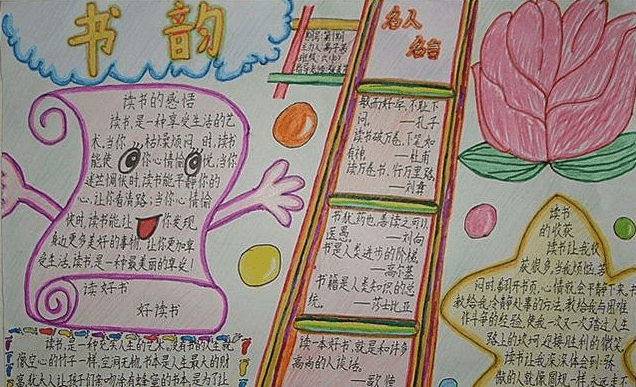 书韵
名人
名言
读书的感悟
读书,是一种享受生活的艺
术,当你枯燥烦闷时,读书
能使你心情愉悦,当你
迷茫惆怅时,读书能平静你的
心,让你看清路;当你心情愉
快时,读书能让你发现
身边更多美好的事物,让你更加享
受生活。读书是一种最美丽的享受!
读好书
好读书
敏而好学,不耻下
问。 —孔子
读书破万卷,下笔如
有神 —杜甫
读万卷书,行万里路
—刘彝
书犹药也,善读之可以
医愚。 —刘向
书是人类进步的阶梯。
—高尔基
书籍是人类知识的总
统。 —莎士比亚
读一本好书,就是和许多
高尚的人谈话。
—歌德
读书
的收获
读书让我收
获很多,当我烦恼苦
闷时,翻开书页,心情就会平静下来,书
教给我冷静处事的方法,教给我与困难
作斗争的经验,使我一次又一次踏过人生
路上的坎坷,迎接胜利的微笑
读书让我深深体会到:张
读书,是一种充实人生的艺术,没有书的人生就
像空心的竹子一样,空洞无物。书本是人生最大的财